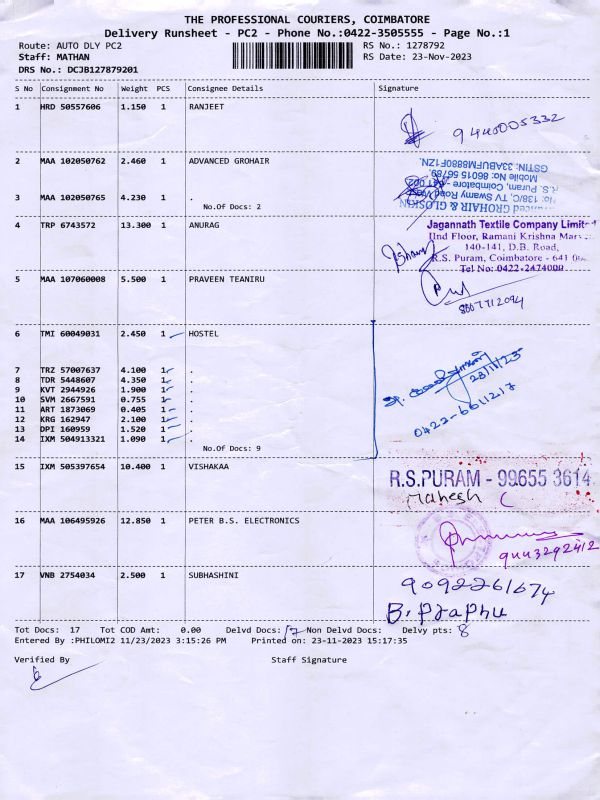 THE PROFESSIONAL COURIERS, COIMBATORE
Delivery Runsheet - PC2 - Phone No.:0422-3505555 - Page No.:1
Route: AUTO DLY PC2 RS No.: 1278792
Staff: MATHAN RS Date: 23-Nov-2023
DRS No.: DCJB127879201
S No Consignment No Weight PCS Consignee Details Signature
1 HRD 50557606 1.150 1 RANJEET
9440005332
2 MAA 102050762 2.460 1 ADVANCED GROHAIR
GROHAIR & GLOSKIN
No: 138/C, TV Swamy Road
R.S. Puram, Coimbatore - 641 002
Mobile No: 86015 56789.
GSTIN: 33ABUFM8880F1ZN.
3 MAA 102050765 4.230 1 .
No.Of Docs: 2
4 TRP 6743572 13.300 1 ANURAG
Jagannath Textile Company Limited
IInd Floor, Ramani Krishna
140-141, D.B. Road,
R.S. Puram, Coimbatore - 641
Tel No: 0422-2474000
5 MAA 107060008 5.500 1 PRAVEEN TEANIRU
8007712094
6 TMI 60049031 2.450 1 HOSTEL
7 TRZ 57007637 4.100 1 .
8 TDR 5448607 4.350 1 .
9 KVT 2944926 1.900 1 .
10 SVM 2667591 0.755 1 .
11 ART 1873069 0.405 1 .
12 KRG 162947 2.100 1 .
13 DPI 160959 1.520 1 .
14 IXM 504913321 1.090 1 .
No.Of Docs: 9
23/11/23
0422-6611217
15 IXM 505397654 10.400 1 VISHAKAA
R.S.PURAM - 99655 3614
Mahesh C
16 MAA 106495926 12.850 1 PETER B.S. ELECTRONICS
9443292412
17 VNB 2754034 2.500 1 SUBHASHINI
9092261674
B. Praphu
Tot Docs: 17 Tot COD Amt: 0.00 Delvd Docs: 17 Non Delvd Docs: Delvy pts: 8
Entered By :PHILOMI2 11/23/2023 3:15:26 PM Printed on: 23-11-2023 15:17:35
Verified By Staff Signature